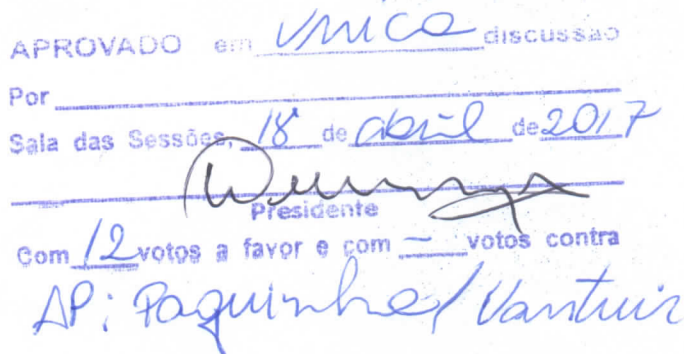 APROVADO em única discussão
Por
Sala das Sessões, 18 de abril de 2017
Presidente
Com 12 votos a favor e com — votos contra
AP: Paquinha / Vantuir